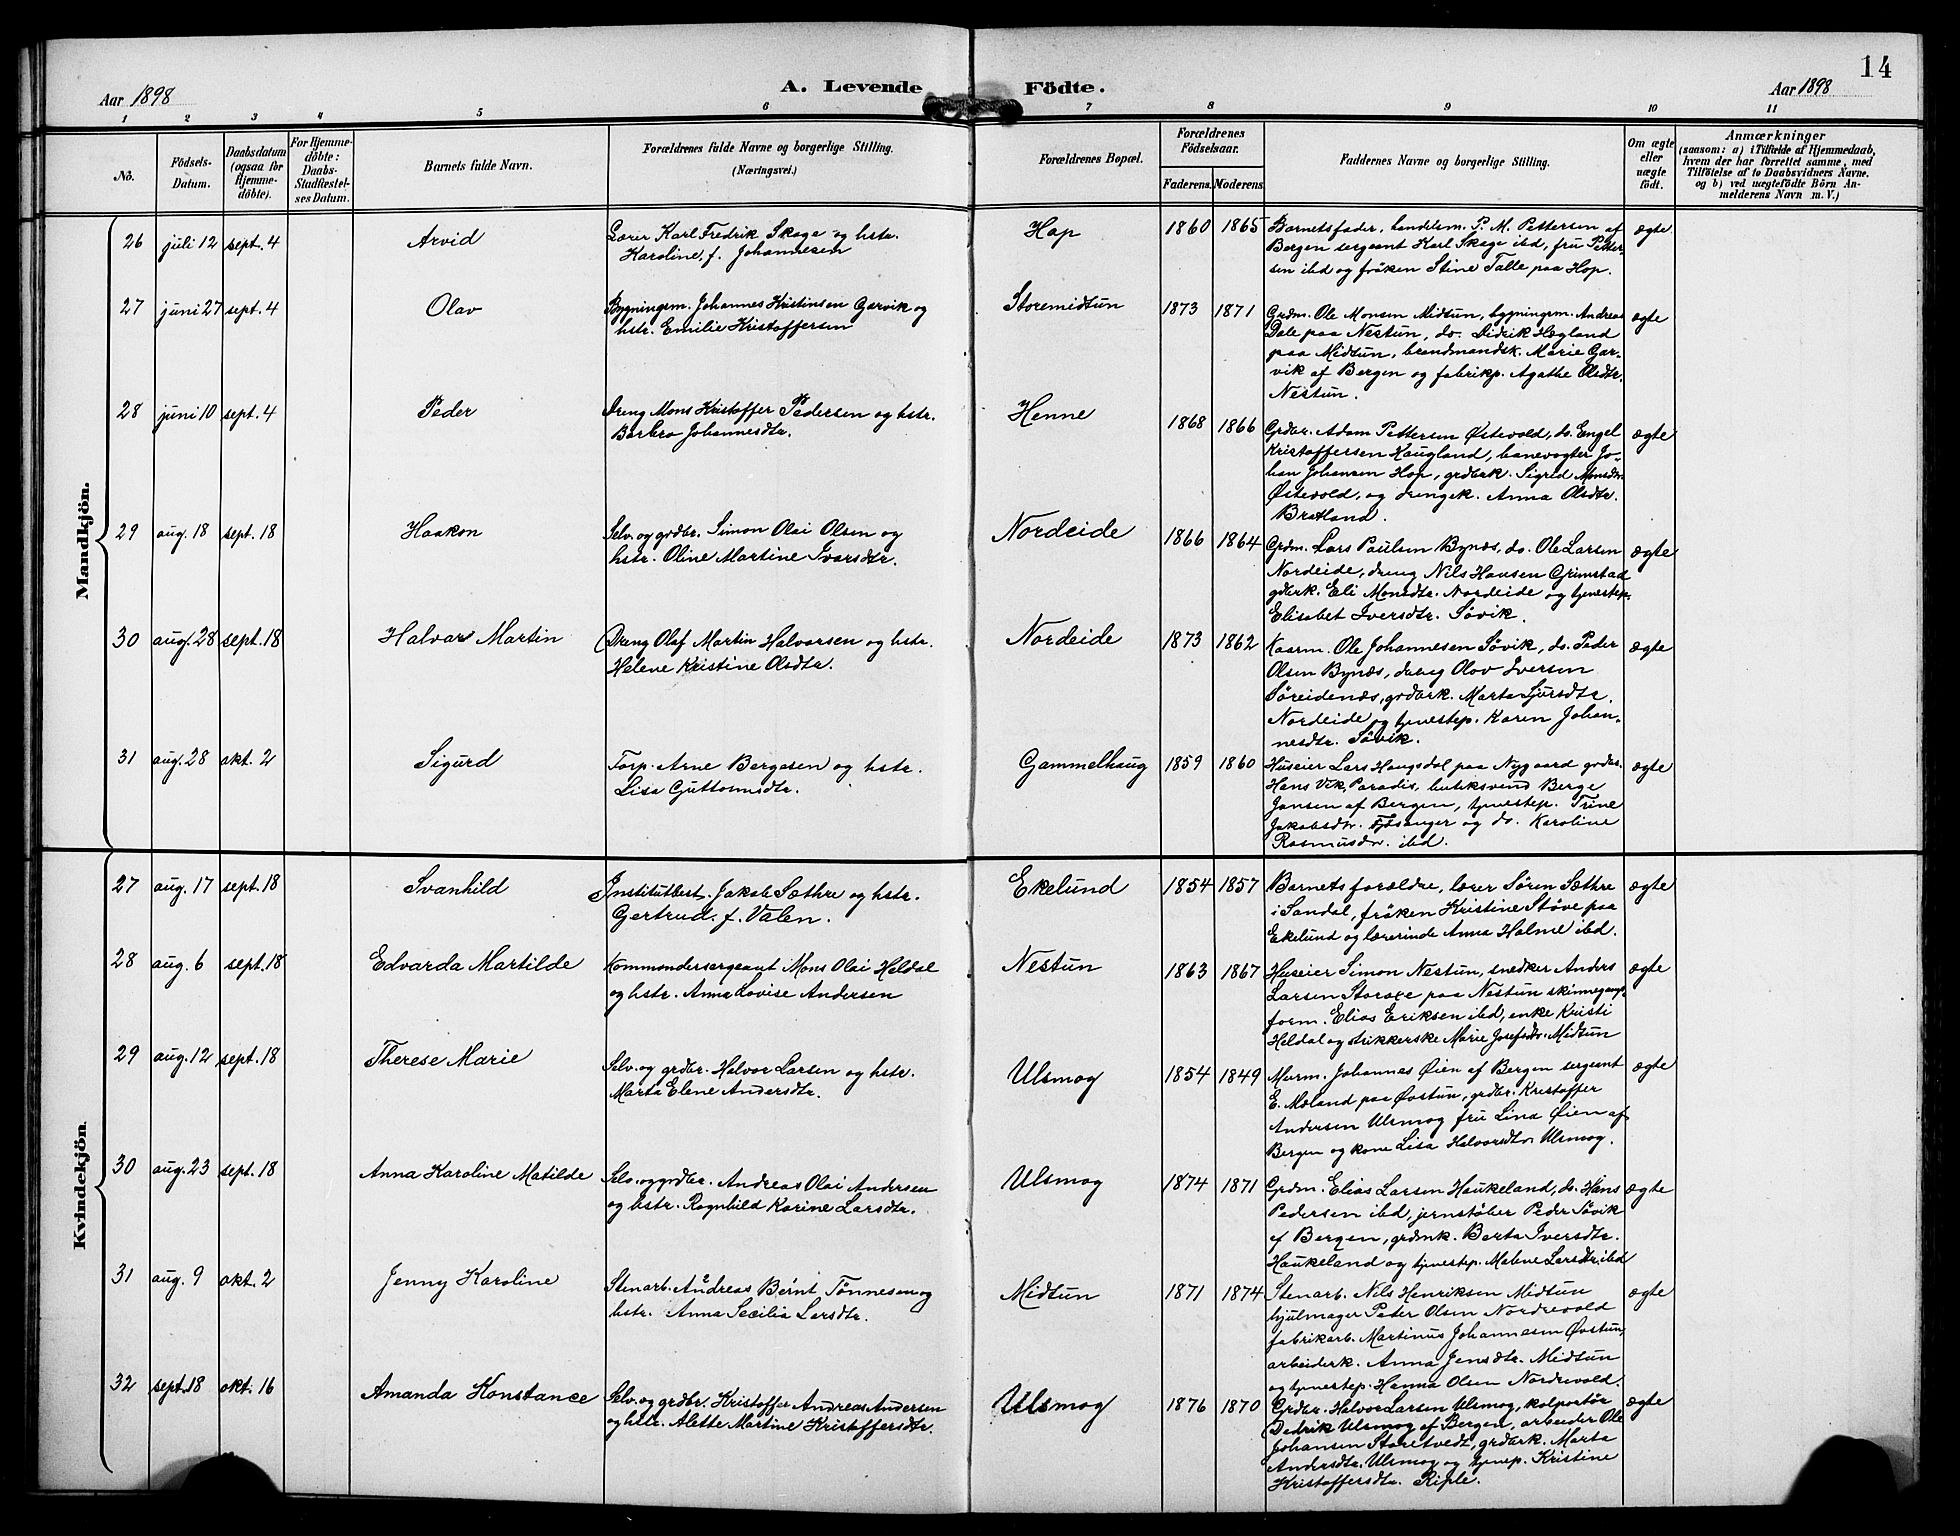 14
Aar 1898
A. Levende Födte.
Aar 1898
1 2 3 4 5 6 7 8 9 10 11
No.
Födsels-
Datum.
Daabsdatum
(ogsaa for
Hjemme-
döbte).
For Hjemme-
döbte:
Daabs-
Stadfæstel-
ses Datum.
Barnets fulde Navn.
Forældrenes fulde Navne og borgerlige Stilling.
(Næringsvei.)
Forældrenes Bopæl.
Forældrenes
Födselsaar.
Faderens. Moderens.
Faddernes Navne og borgerlige Stilling.
Om ægte
eller
uægte
født.
Anmærkninger
(saasom: a) i Tilfælde af Hjemmedaab,
hvem der har forrettet samme, med
Tilföielse af to Daabsvidners Navne.
og b) ved uægtefödte Börn An-
melderens Navn m. V.)
Mandkjön.
26 juli 12 sept. 4 Arvid
Lærer Karl Fredrik Skage og hstr.
Karoline, f. Johannesen
Hop 1860 1865
Barnetsfader, handelsm. P. M. Pettersen af
Bergen sergeant Karl Skage ibd, fru Petter-
sen ibd og fröken Stine Talle paa Hop.
ægte
27 juni 27 sept. 4 Olav
Bygningsm. Johannes Kristinsen Garvik og
hstr. Emilie Kristoffersen
Storemidtun 1873 1871
Grdm. Ole Monsen Midtun, bygningsm. Andreas
Dale paa Nestun, do. Didrik Hægland
paa Midtun, brandmandsk. Marie Gar-
vik af Bergen og fabrikp. Agathe Olsdtr.
Nestun.
ægte
28 juni 10 sept. 4 Peder
Dreng Mons Kristoffer Pedersen og hstr.
Barbro Johannesdtr.
Henne 1868 1866
Grdbr. Adam Pettersen Østevold, do. Engel
Kristoffersen Haugland, banevogter Jo-
han Johansen Hop, grdbrk. Sigrid Monsdtr.
Østevold, og drengek. Anna Olsdtr.
Bratland.
ægte
29 aug. 18 sept. 18 Haakon
Selv. og grdbr. Simon Olai Olsen og
hstr. Oline Martine Ivarsdtr.
Nordeide 1866 1864
Grdm. Lars Paulsen Bynæs, do. Ole Larsen
Nordeide, dreng Nils Hansen Grimstad
gdbrk. Eli Monsdtr. Nordeide og tjenestep.
Elisabet Iversdtr. Søvik.
ægte
30 aug. 28 sept. 18 Halvar Martin
Dreng Olaf Martin Halvorsen og hstr.
Helene Kristine Olsdtr.
Nordeide 1873 1862
Kaarm. Ole Johannesen Søvik, do. Peder
Olsen Bynæs, dreng Olav Iversen
Søreidenæs, grdbrk. Marta Sjursdtr.
Nordeide og tjenestep. Karen Johan-
nesdtr. Søvik.
ægte
31 aug. 28 okt. 2 Sigurd
Torp. Arne Bergesen og hstr.
Lisa Guttormsdtr.
Gammelhaug 1859 1860
Huseier Lars Haugsdal paa Nygaard grdbr.
Hans Vik, Paradis, butiksvend Berge
Jansen af Bergen, tjenestep. Trine
Jakobsdtr. Fjøsanger og do. Karoline
Rasmusdtr. ibd.
ægte
Kvindekjön.
27 aug. 17 sept. 18 Svanhild
Institutbest. Jakob Sæthre og hstr.
Gertrud. f. Valen.
Ekelund 1854 1857
Barnets forældre, lærer Søren Sæthre
i Sandal, fröken Kristine Støve paa
Ekelund og lærerinde Anna Holme ibd.
ægte
28 aug. 6 sept. 18 Edvarda Martilde
Kommandersergeant Mons Olai Heldal
og hstr. Anna Lovise Andersen
Nestun 1863 1867
Huseier Simon Nestun, snedker Anders
Larsen Storaxe paa Nestun skinnegangs
form. Elias Eriksen ibd, enke Kristi
Heldal og strikkerske Marie Josefsdtr. Midtun
ægte
29 aug. 12 sept. 18 Therese Marie
Selv. og grdbr. Halvor Larsen og hstr.
Marta Elene Andersdtr.
Ulsmog 1854 1849
Murm. Johannes Øien af Bergen sergeant
E. Mæland paa Øvstun, grdbr. Kristoffer
Andersen Ulsmog fru Lina Øien af
Bergen og kone Lisa Halvorsdtr. Ulsmog.
ægte
30 aug. 23 sept. 18 Anna Karoline Matilde
Selv. og grdbr. Andreas Olai Andersen
og hstr. Ragnhild Karine Larsdtr.
Ulsmog 1874 1871
Grdm. Elias Larsen Haukeland, do. Hans
Pedersen ibd, jernstøber Peder Søvik
af Bergen, grdmk. Berta Iversdtr.
Haukeland og tjenestep. Malene Larsdtr. ibd
ægte
31 aug. 9 okt. 2 Jenny Karoline
Stenarb. Andreas Bernt Tønnesen og
hstr. Anna Secilia Larsdtr.
Midtun 1871 1874
Stenarb. Nils Henriksen Midtun
hjulmager Peter Olsen Nordrevold
fabrikarb. Martinus Johannesen Øvstun,
arbeiderk. Anna Jensdtr. Midtun
og tjenestep. Hanna Olsen Nordrevold.
ægte
32 sept. 18 okt. 16 Amanda Konstance
Selv. og grdbr. Kristoffer Andreas Andersen
og hstr. Alette Martine Kristoffersdtr.
Ulsmog 1876 1870
Grdbr. Halvor Larsen Ulsmog, kolportör
Dedrik Ulsmog af Bergen, arbeider Ole
Johansen Storetvedt, grdbrk. Marta
Andersdtr. Ulsmog og tjenep. Kristine
Kristoffersdtr. Riple.
ægte